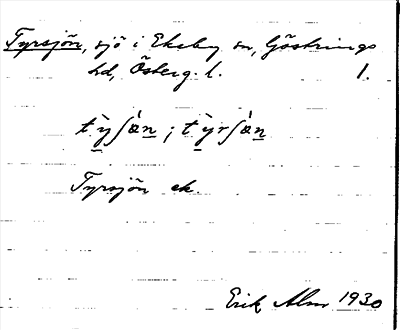 Tyrsjön, sjö i Ekeby sn, Göstrings
hd, Österg. l. 1.
tỳʃàn ; tỳrʃàn
Tyrsjön ek.
Erik Alm 1930